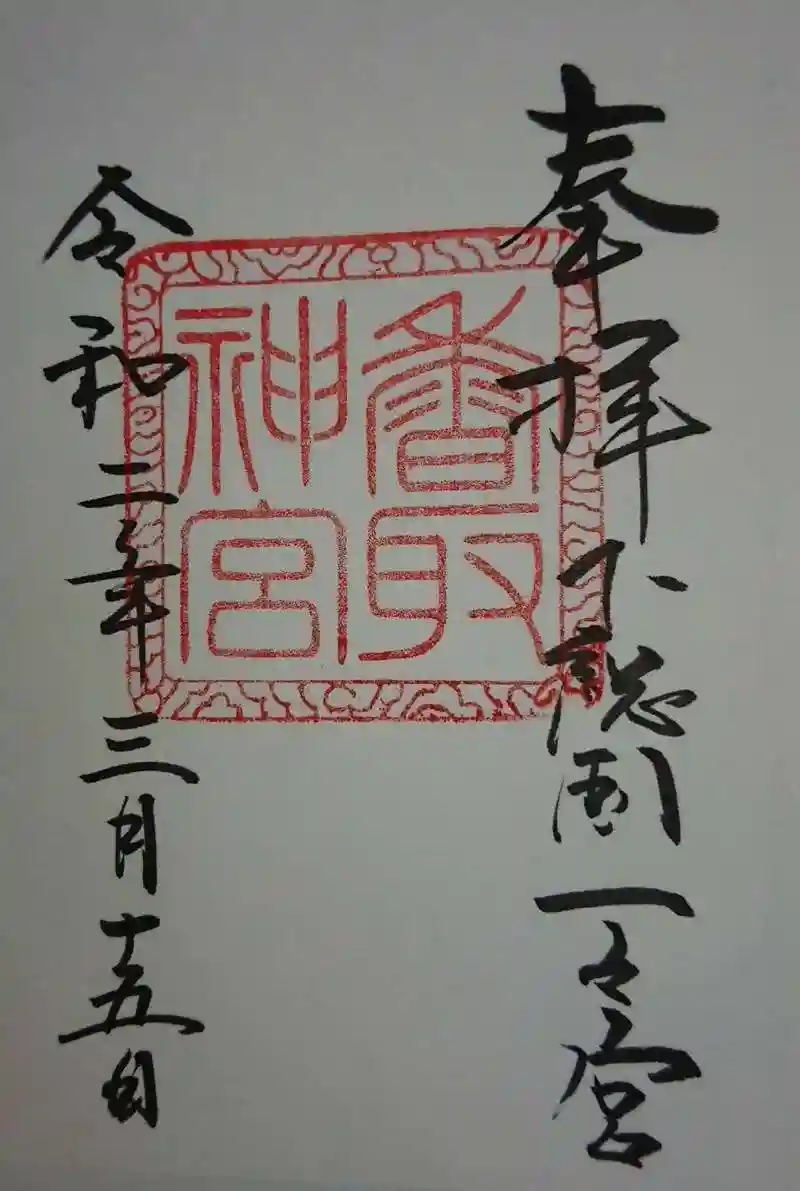 奉拝下総国一之宮
香取
神宮
令和二年三月十五日